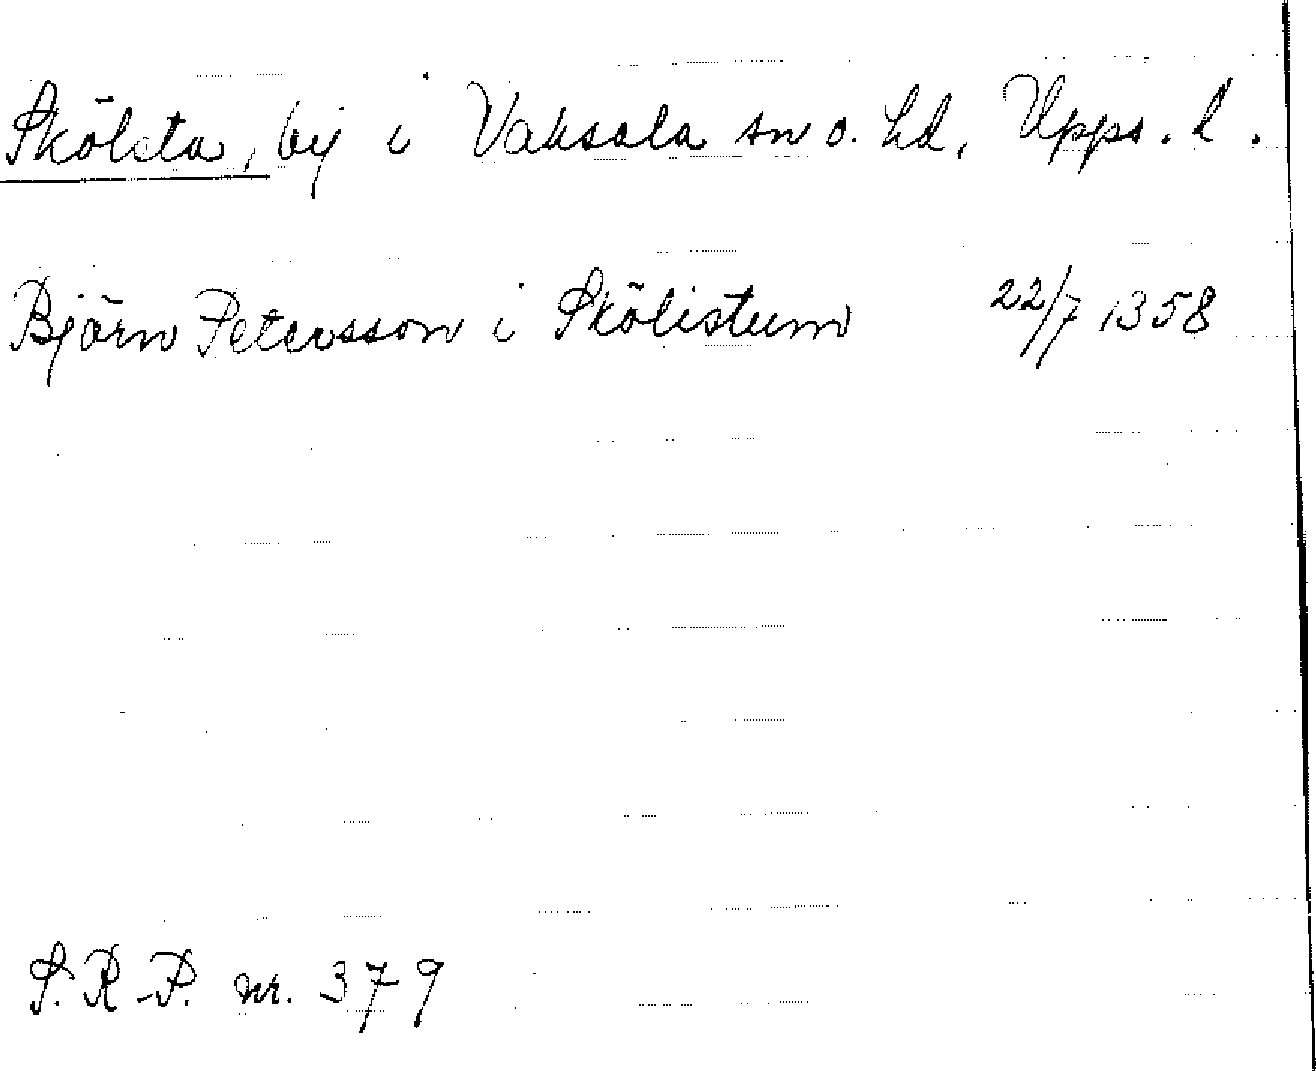 Skölsta, by i Vaksala sn o. hd, Upps. l.
Björn Petersson i Skölistum 22/7 1358
S. R-P. nr. 379